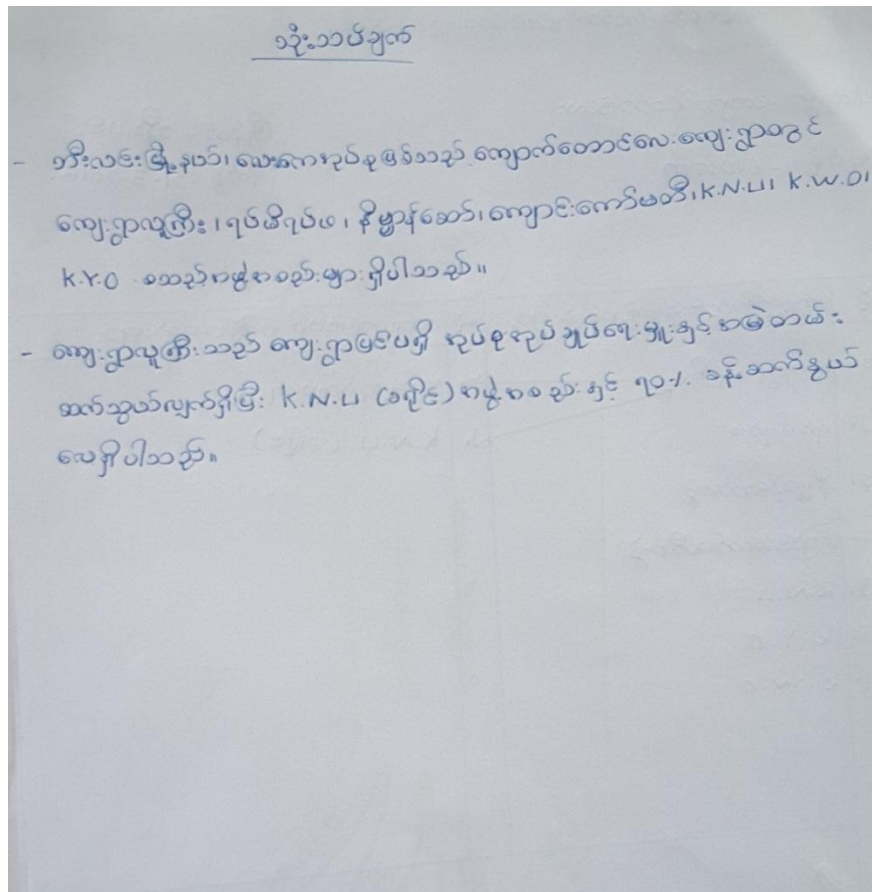 သုံးသပ်ချက်
- ဘီးလင်းမြို့နယ်၊ လေးကေအုပ်စုဖြစ်သည့် ကျောက်တောင်လေးကျေးရွာတွင်
ကျေးရွာလူကြီး၊ ရပ်မိရပ်ဖ၊ နိဗ္ဗာန်ဆော်၊ ကျောင်းကော်မတီ၊ K.N.U၊ K.W.O၊
K.Y.O စသည့်အဖွဲ့အစည်းများရှိပါသည်။
- ကျေးရွာလူကြီးသည် ကျေးရွာပြင်ပရှိ အုပ်စုအုပ်ချုပ်ရေးမှူးနှင့်အမြဲတမ်း
ဆက်သွယ်လျက်ရှိပြီး K.N.U (ခရိုင်) အဖွဲ့အစည်းနှင့် ၇၀% ခန့်ဆက်နွယ်
လေ့ရှိပါသည်။